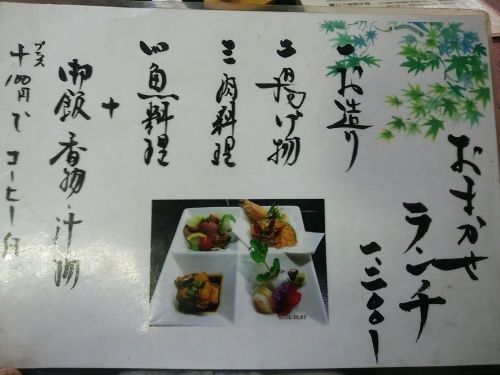 おまかせ
ランチ
一、二〇〇ー
一お造り
二揚げ物
三肉料理
四魚料理
+
御飯 香物 汁物
プラス
+100円で コーヒー付